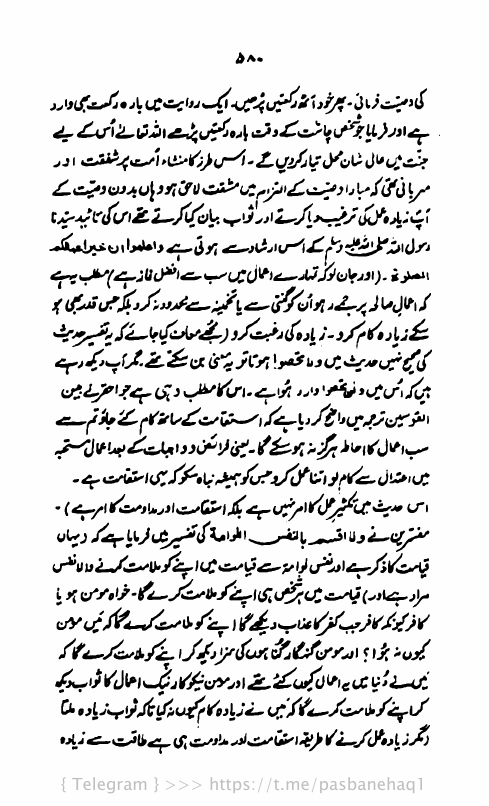 ۵۸۰
کی وصیت فرمائی۔ پھر خود آٹھ رکعتیں پڑھیں۔ ایک روایت میں بارہ رکعت بھی وارد
ہے اور فرمایا جو شخص چاشت کے وقت بارہ رکعتیں پڑھے اللہ تعالےٰ اُس کے لیے
جنت میں عالی شان محل تیار کر دیں گے۔ اس طرز کا منشاء امت پر شفقت اور
مہربانی تھی کہ مبادا وصیت کے التزام میں مشقت لاحق ہو وہاں بدون وصیت کے
آپ زیادہ عمل کی ترغیب دیا کرتے اور ثواب بیان کیا کرتے تھے اس کی تائید سیدنا
رسول اللہ صلی اللہ علیہ وسلم کے اس ارشاد سے ہوتی ہے واعلموا ان خیر اعمالکم
الصلوٰۃ۔ (اور جان لو کہ تمہارے اعمال میں سب سے افضل نماز ہے) مطلب یہ ہے
کہ اعمال صالحہ پر جمے رہو اُن کو گنتی سے یا تخمینہ سے محدود نہ کرو بلکہ جس قدر بھی ہو
سکے زیادہ کام کرو۔ زیادہ کی رغبت کرو (مجھے معاف کیا جائے کہ یہ تفسیر حدیث
کی صحیح نہیں حدیث میں ولا تحصوا! ہوتا تو یہ معنیٰ بن سکتے تھے۔ مگر آپ دیکھ رہے
ہیں کہ اُس میں ولن تحصوا وارد ہوا ہے۔ اس کا مطلب وہی ہے جو احقر نے بین
القوسین ترجمہ میں واضح کر دیا ہے کہ استقامت کے ساتھ کام کئے جاؤ تم سے
سب اعمال کا احاطہ ہرگز نہ ہو سکے گا۔ یعنی فرائض و واجبات کے بعد اعمال مستحبہ
میں اعتدال سے کام لو اتنا عمل کرو جس کو ہمیشہ نباہ سکو کہ یہی استقامت ہے۔
اس حدیث میں تکثیر عمل کا امر نہیں ہے بلکہ استقامت اور مداومت کا امر ہے)۔
مفسرین نے ولا اقسم بالنفس اللوامۃ کی تفسیر میں فرمایا ہے کہ (یہاں
قیامت کا ذکر ہے اور نفس لوامہ سے قیامت میں اپنے کو ملامت کرنے والا نفس
مراد ہے اور) قیامت میں ہر شخص ہی اپنے کو ملامت کرے گا۔ خواہ مومن ہو یا
کافر کیونکہ کافر جب کفر کا عذاب دیکھے گا اپنے کو ملامت کرے گا کہ میں مومن
کیوں نہ ہوا؟ اور مومن گنہگار گناہوں کی سزا دیکھ کر اپنے کو ملامت کرے گا کہ
میں نے دُنیا میں یہ اعمال کیوں کئے تھے اور مومن نیکوکار نیک اعمال کا ثواب دیکھ
کر اپنے کو ملامت کرے گا کہ میں نے زیادہ کام کیوں نہ کیا تاکہ ثواب زیادہ ملتا
(مگر زیادہ عمل کرنے کا طریقہ استقامت اور مداومت ہی ہے طاقت سے زیادہ
{ Telegram } >>> https://t.me/pasbanehaq1